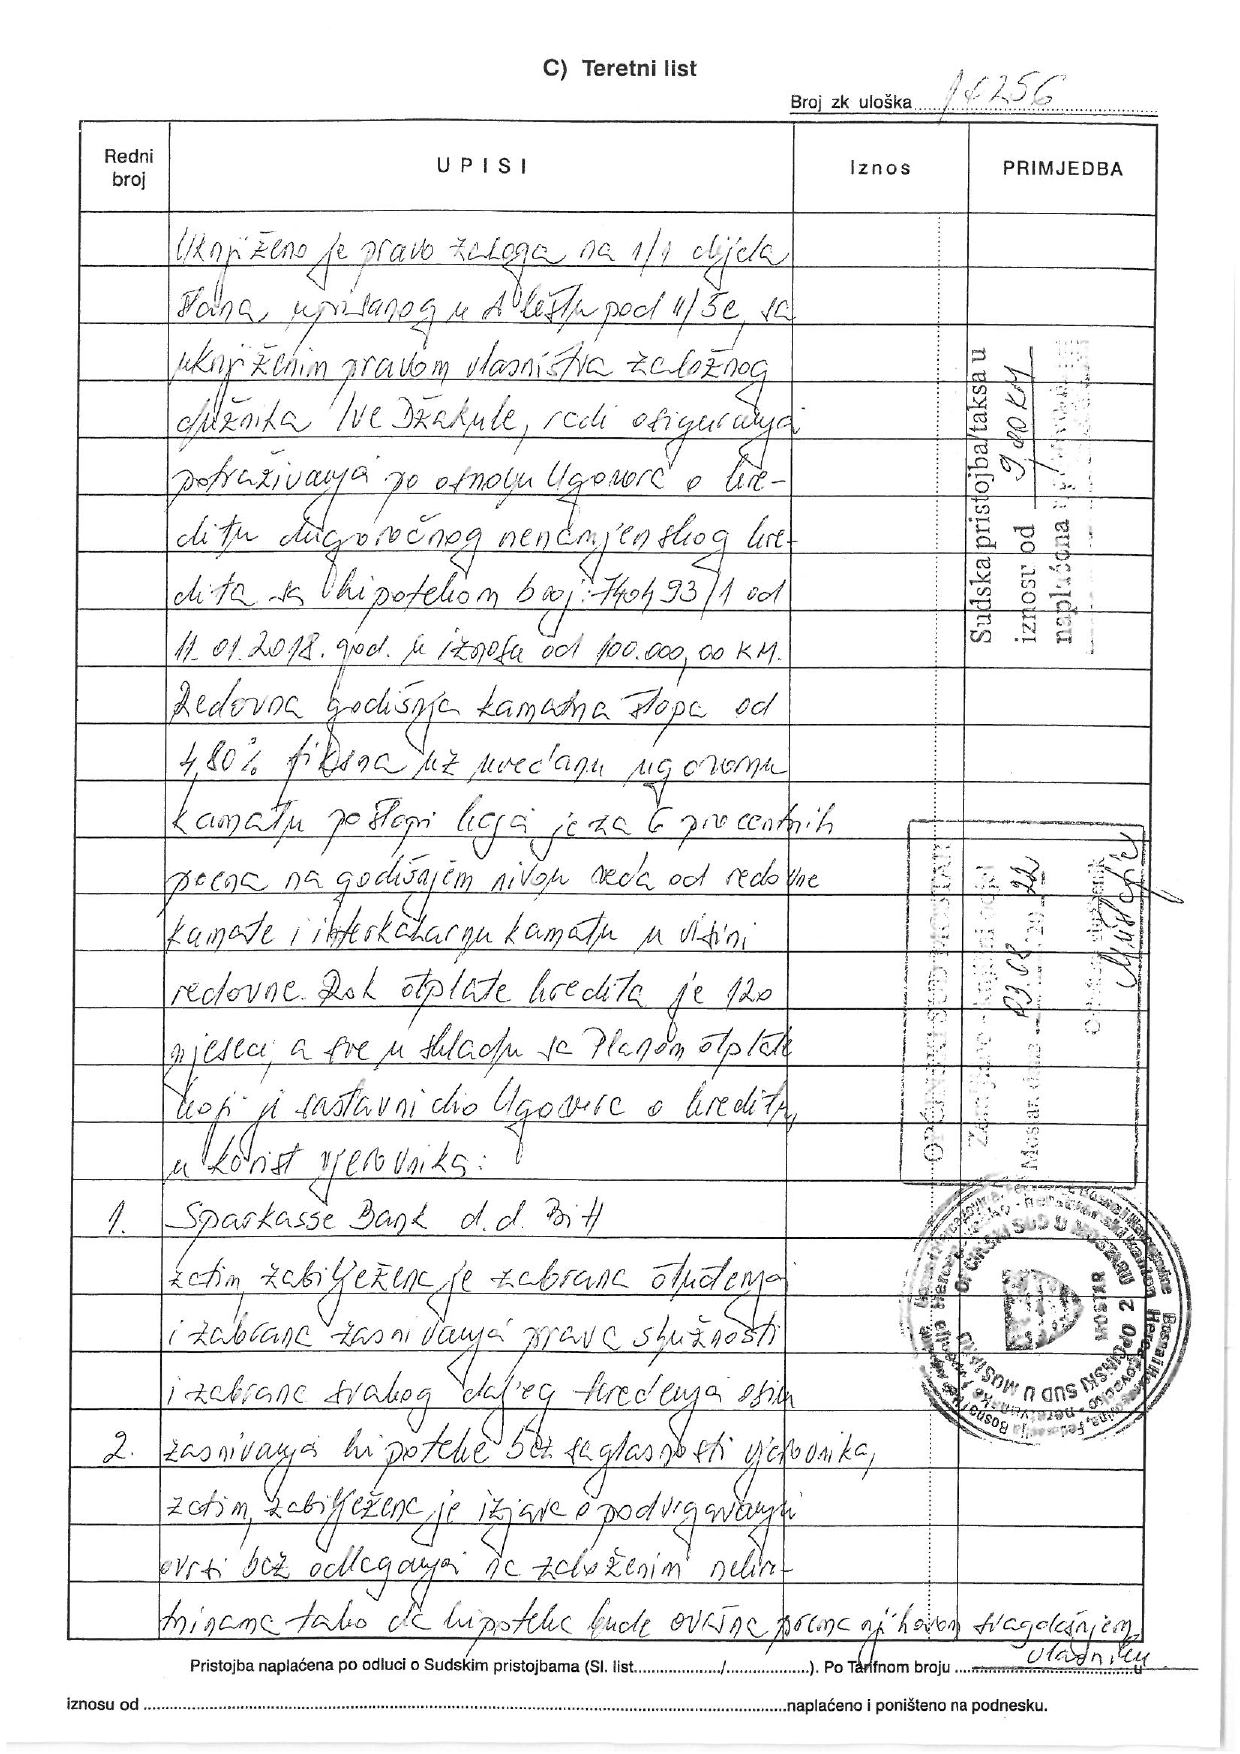 C) Teretni list
Broj zk uloška 14256
Redni broj
UPISI
Iznos
PRIMJEDBA
Uknjiženo je pravo zaloga na 1/1 dijela
stana, upisanog u A listu pod II/5e, sa
uknjiženim pravom vlasništva založnog
dužnika Ive Džakule, radi osiguranja
potraživanja po osnovu Ugovora o kre-
ditu dugoročnog nenamjenskog kre-
dita sa hipotekom broj: 740493/1 od
11.01.2018. god. u iznosu od 100.000,00 KM.
Redovna godišnja kamatna stopa od
4,80% fiksna uz uvećanu ugovornu
kamatu po stopi koja je za 6 procentnih
poena na godišnjem nivou veća od redovne
kamate i interkalarnu kamatu u visini
redovne. Rok otplate kredita je 120
mjeseci, a sve u skladu sa Planom otplate
koji je sastavni dio Ugovora o kreditu,
u korist vjerovnika:
1. Sparkasse Bank d.d. BiH
zatim, zabilježena je zabrana otuđenja
i zabrana zasnivanja prava služnosti
i zabrana svakog daljeg terećenja osim
2. zasnivanja hipoteke bez saglasnosti vjerovnika,
zatim, zabilježena je izjava o podvrgavanju
ovrsi bez odlaganja na založenim nekre-
tninama tako da hipoteka bude ovršna prema njihovom svagdašnjem
vlasniku
Sudska pristojba/taksa u
iznosu od 9,00 KM
naplaćena
OPĆINSKI SUD MOSTAR
Zemljišno-knjižni
Mostar, dana 03.08. 2022
Ovlašteni službenik
OPĆINSKI SUD U MOSTARU
MOSTAR
2
Pristojba naplaćena po odluci o Sudskim pristojbama (Sl. list............/............). Po Tarifnom broju ............ u
iznosu od ............ naplaćeno i poništeno na podnesku.